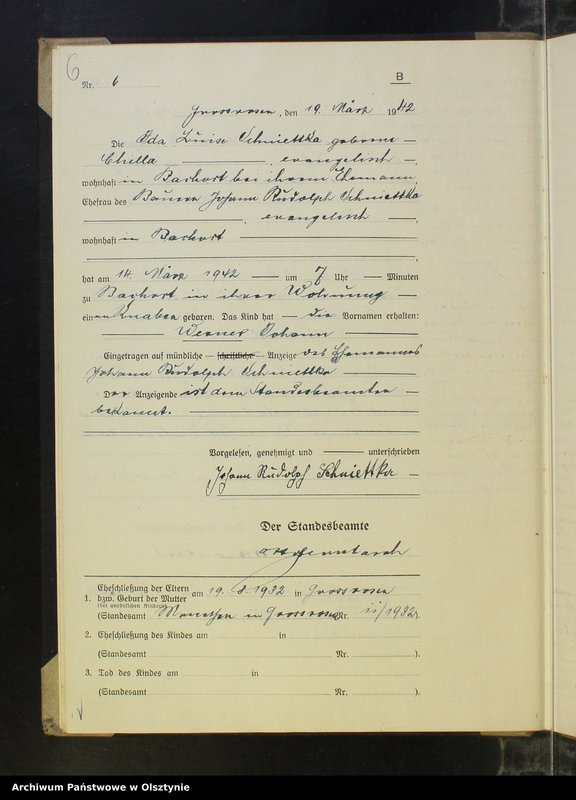 6
Nr. 6
B
Grossrosen, den 19. März 1942
Die Ida Luise Schniettka geborene
Chella, evangelisch,
wohnhaft in Bachort bei ihrem Ehemann,
Ehefrau des Bauern Johann Rudolph Schniettka
, evangelisch,
wohnhaft in Bachort
,
hat am 14. März 1942 um 7 Uhr Minuten
zu Bachort in ihrer Wohnung
einen Knaben geboren. Das Kind hat die Vornamen erhalten:
Werner Johann
Eingetragen auf mündliche – schriftliche – Anzeige des Ehemannes
Johann Rudolph Schniettka
Der Anzeigende ist dem Standesbeamten
bekannt.
Vorgelesen, genehmigt und unterschrieben
Johann Rudolph Schniettka
Der Standesbeamte
Eheschließung der Eltern
1. bzw. Geburt der Mutter am 19. 8. 1932 in Grossrosen
(bei unehelichen Kindern)
(Standesamt in Grossrosen Nr. 11/1932).
2. Eheschließung des Kindes am in
(Standesamt Nr. ).
3. Tod des Kindes am in
(Standesamt Nr. ).
Archiwum Państwowe w Olsztynie